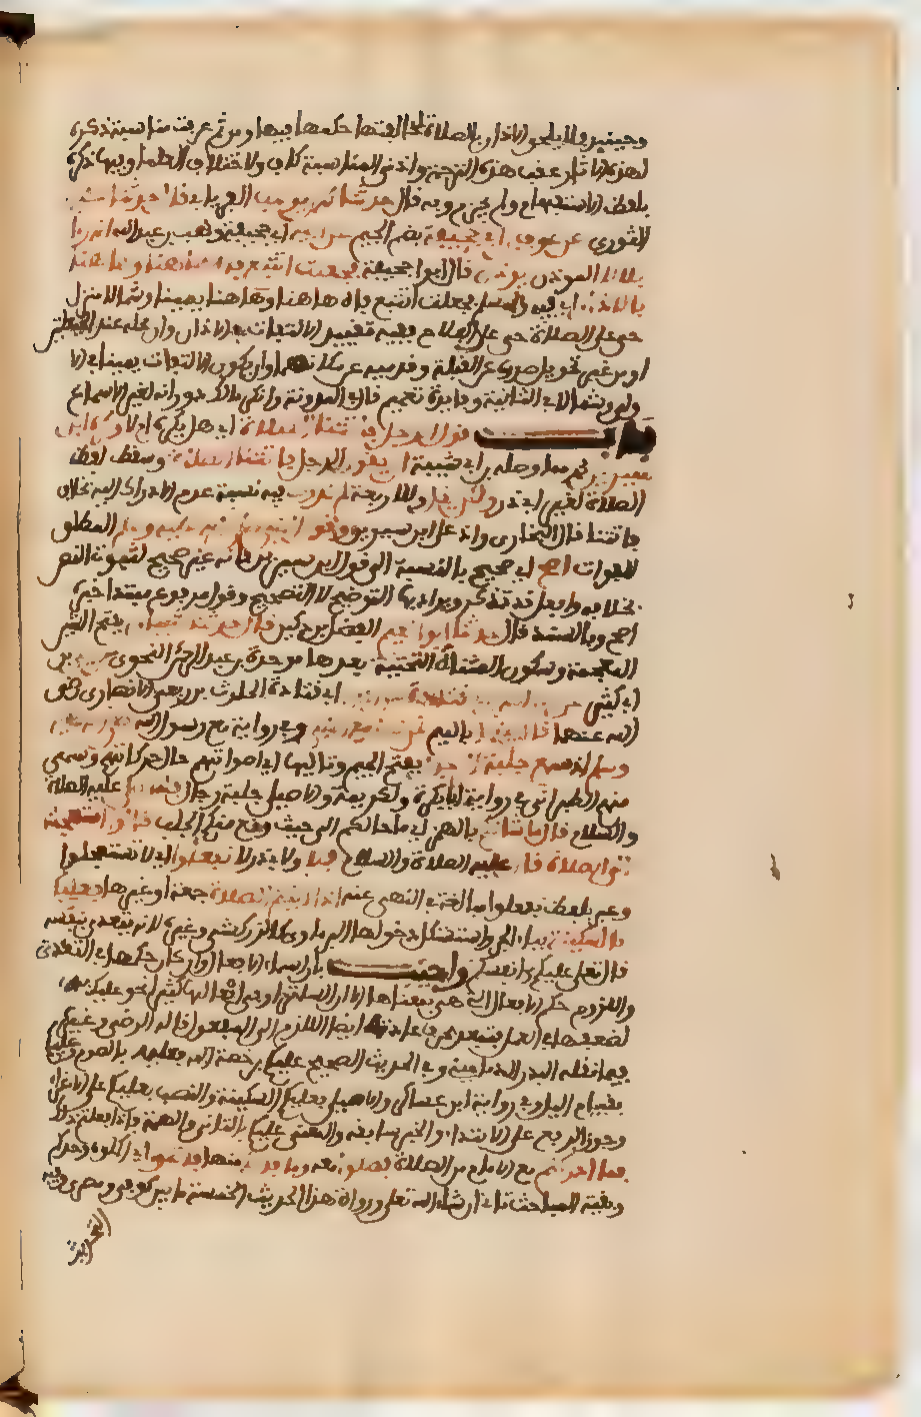 وحينئذ فلا يلحق الاذان بالصلاة لمخالفتها حكمها فيها ومن ثم عرفت مناسبة ذكره
لهذه الاثار عقب هذه الترجمة وادنى المناسبة كاف ولاختلاف العلما فيها ذكره
بلفظ الاستفهام ولم يجزم وبه قال حدثنا محمد بن يوسف الفريابي قال حدثنا سفين
الثوري عن عون بن ابي جحيفة بضم الجيم عن ابيه ابي جحيفة وهب بن عبد الله انه راى
بلالا الموذن يوذن قال ابو جحيفة فجعلت اتتبع فاه هاهنا وهاهنا
بالاذان اي فيه ولمسلم فجعلت اتتبع فاه هاهنا وهاهنا يمينا وشمالا يقول
حي على الصلاة حي على الفلاح ففيه تقييد الالتفات في الاذان وان محله عند الحيعلتين
او من غير تحويل صدره عن القبلة وقدميه عن مكانهما وان يكون الالتفات يمينا في الا
ولى وشمالا في الثانية وفايدة تعميم قال في المدونة وانكر مالك دورانه لغير الاسماع
باب قول الرجل فاتتنا الصلاة اي هل يكره ام لا وكره ابن
سيرين محمد وصله ابن ابي شيبة ان يقول الرجل فاتتنا الصلاة وسقط لفظ
الصلاة لغير ابي ذر وليقل وللاربعة لم ندرك فيه نسبة عدم الادراك اليه بخلاف
فاتتنا قال البخاري رادا على ابن سيرين وقول النبي صلى الله عليه وسلم المطلق
للفوات اصح اي صحيح بالنسبة الى قول ابن سيرين فانه غير صحيح لثبوت النص
بخلافه وافعل قد تذكر ويراد بها التوضيح لا التصحيح وقول مرفوع مبتدا خبره
اصح وبالسند قال حدثنا ابو نعيم الفضل بن دكين قال حدثنا شيبان بفتح الشين
المعجمة وسكون المثناة التحتية بعدها موحدة بن عبد الرحمن النحوي عن يحيى بن
ابي كثير عن عبد الله بن ابي قتادة عن ابيه ابي قتادة الحارث بن ربعي الانصاري رضى
الله عنهما قال بينما بالميم نحن نصلي مع النبي وفي رواية مع رسول الله صلى الله عليه
وسلم اذ سمع جلبة رجال بفتح الجيم وتاليها اي اصواتهم حال حركاتهم وسمى
منهم الطبراني في رواية ابا بكرة ولكريمة والاصيلي جلبة رجال فلما صلى عليه الصلاة
والسلام قال ما شانكم بالهمز اي ما حالكم الى حيث وقع منكم الجلب قالوا استعجلنا
الى الصلاة قال عليه الصلاة والسلام فلا ولابي ذر لا تفعلوا اي لا تستعجلوا
وعبر بلفظ تفعلوا مبالغة في النهي عنه اذا اتيتم الصلاة جمعة او غيرها فعليكم
بالسكينة بباء الجر واستشكل دخولها البرماوي كالزركشي وغيره لانه يتعدى بنفسه
قال تعلى عليكم انفسكم واجيب بان اسماء الافعال وان كان حكمها في التعدى
واللزوم حكم الافعال التي هي بمعناها الا ان الباء تزاد في مفعولها كثيرا نحو عليك به
لضعفها في العمل فتعمد بحرف عادته ايصال اللازم الى المفعول قاله الرضي وغيره
فيما نقله البدر الدماميني وفي الحديث الصحيح عليكم برخصة الله فعليه بالصوم وعليك
بقيام الليل وفي رواية ابن عساكر والاصيلي فعليكم السكينة بالنصب بعليكم على الاغراء
وجوز الرفع على الابتداء والخبر سابقه والمعنى عليكم بالتاني والهينة فاذا فعلتم ذلك
فما ادركتم مع الامام من الصلاة فصلوا معه وما فاتكم منها فاتموا اي اكملوه وحدكم
وبقية المباحث تاتي ان شاء الله تعلى ورواة هذا الحديث الخمسة ما بين كوفي وبصري وفيه
التحديث